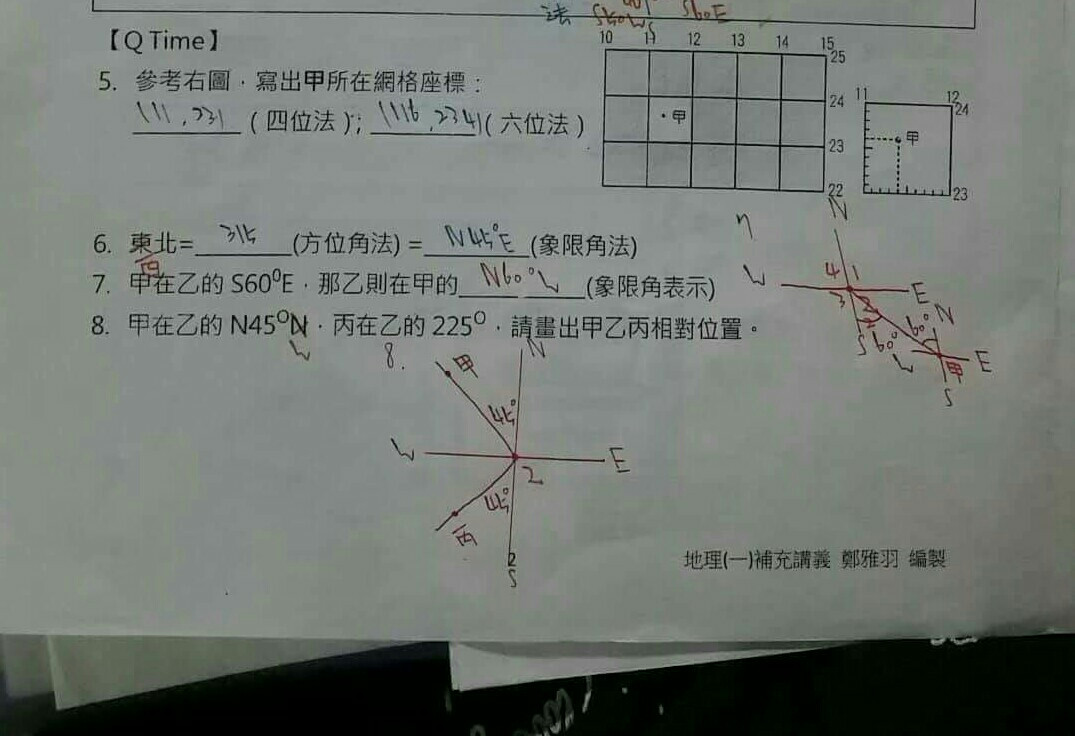 法 S60E
【Q Time】
10 11 12 13 14 15
25
24
23
22
11 12
24
23
甲
甲
5. 參考右圖，寫出甲所在網格座標：
111,231 (四位法)；1116,2341 (六位法)
6. 東北=315(方位角法) = N45°E (象限角法)
西
7. 甲在乙的 S60⁰E，那乙則在甲的 N60°W (象限角表示)
8. 甲在乙的 N45⁰N，丙在乙的 225⁰，請畫出甲乙丙相對位置。
W
N
W 4 1 E
3 2
S 60° 60° N
W 甲 E
S
8.
甲 N
45°
W E
乙
45°
丙
S
地理(一)補充講義 鄭雅羽 編製